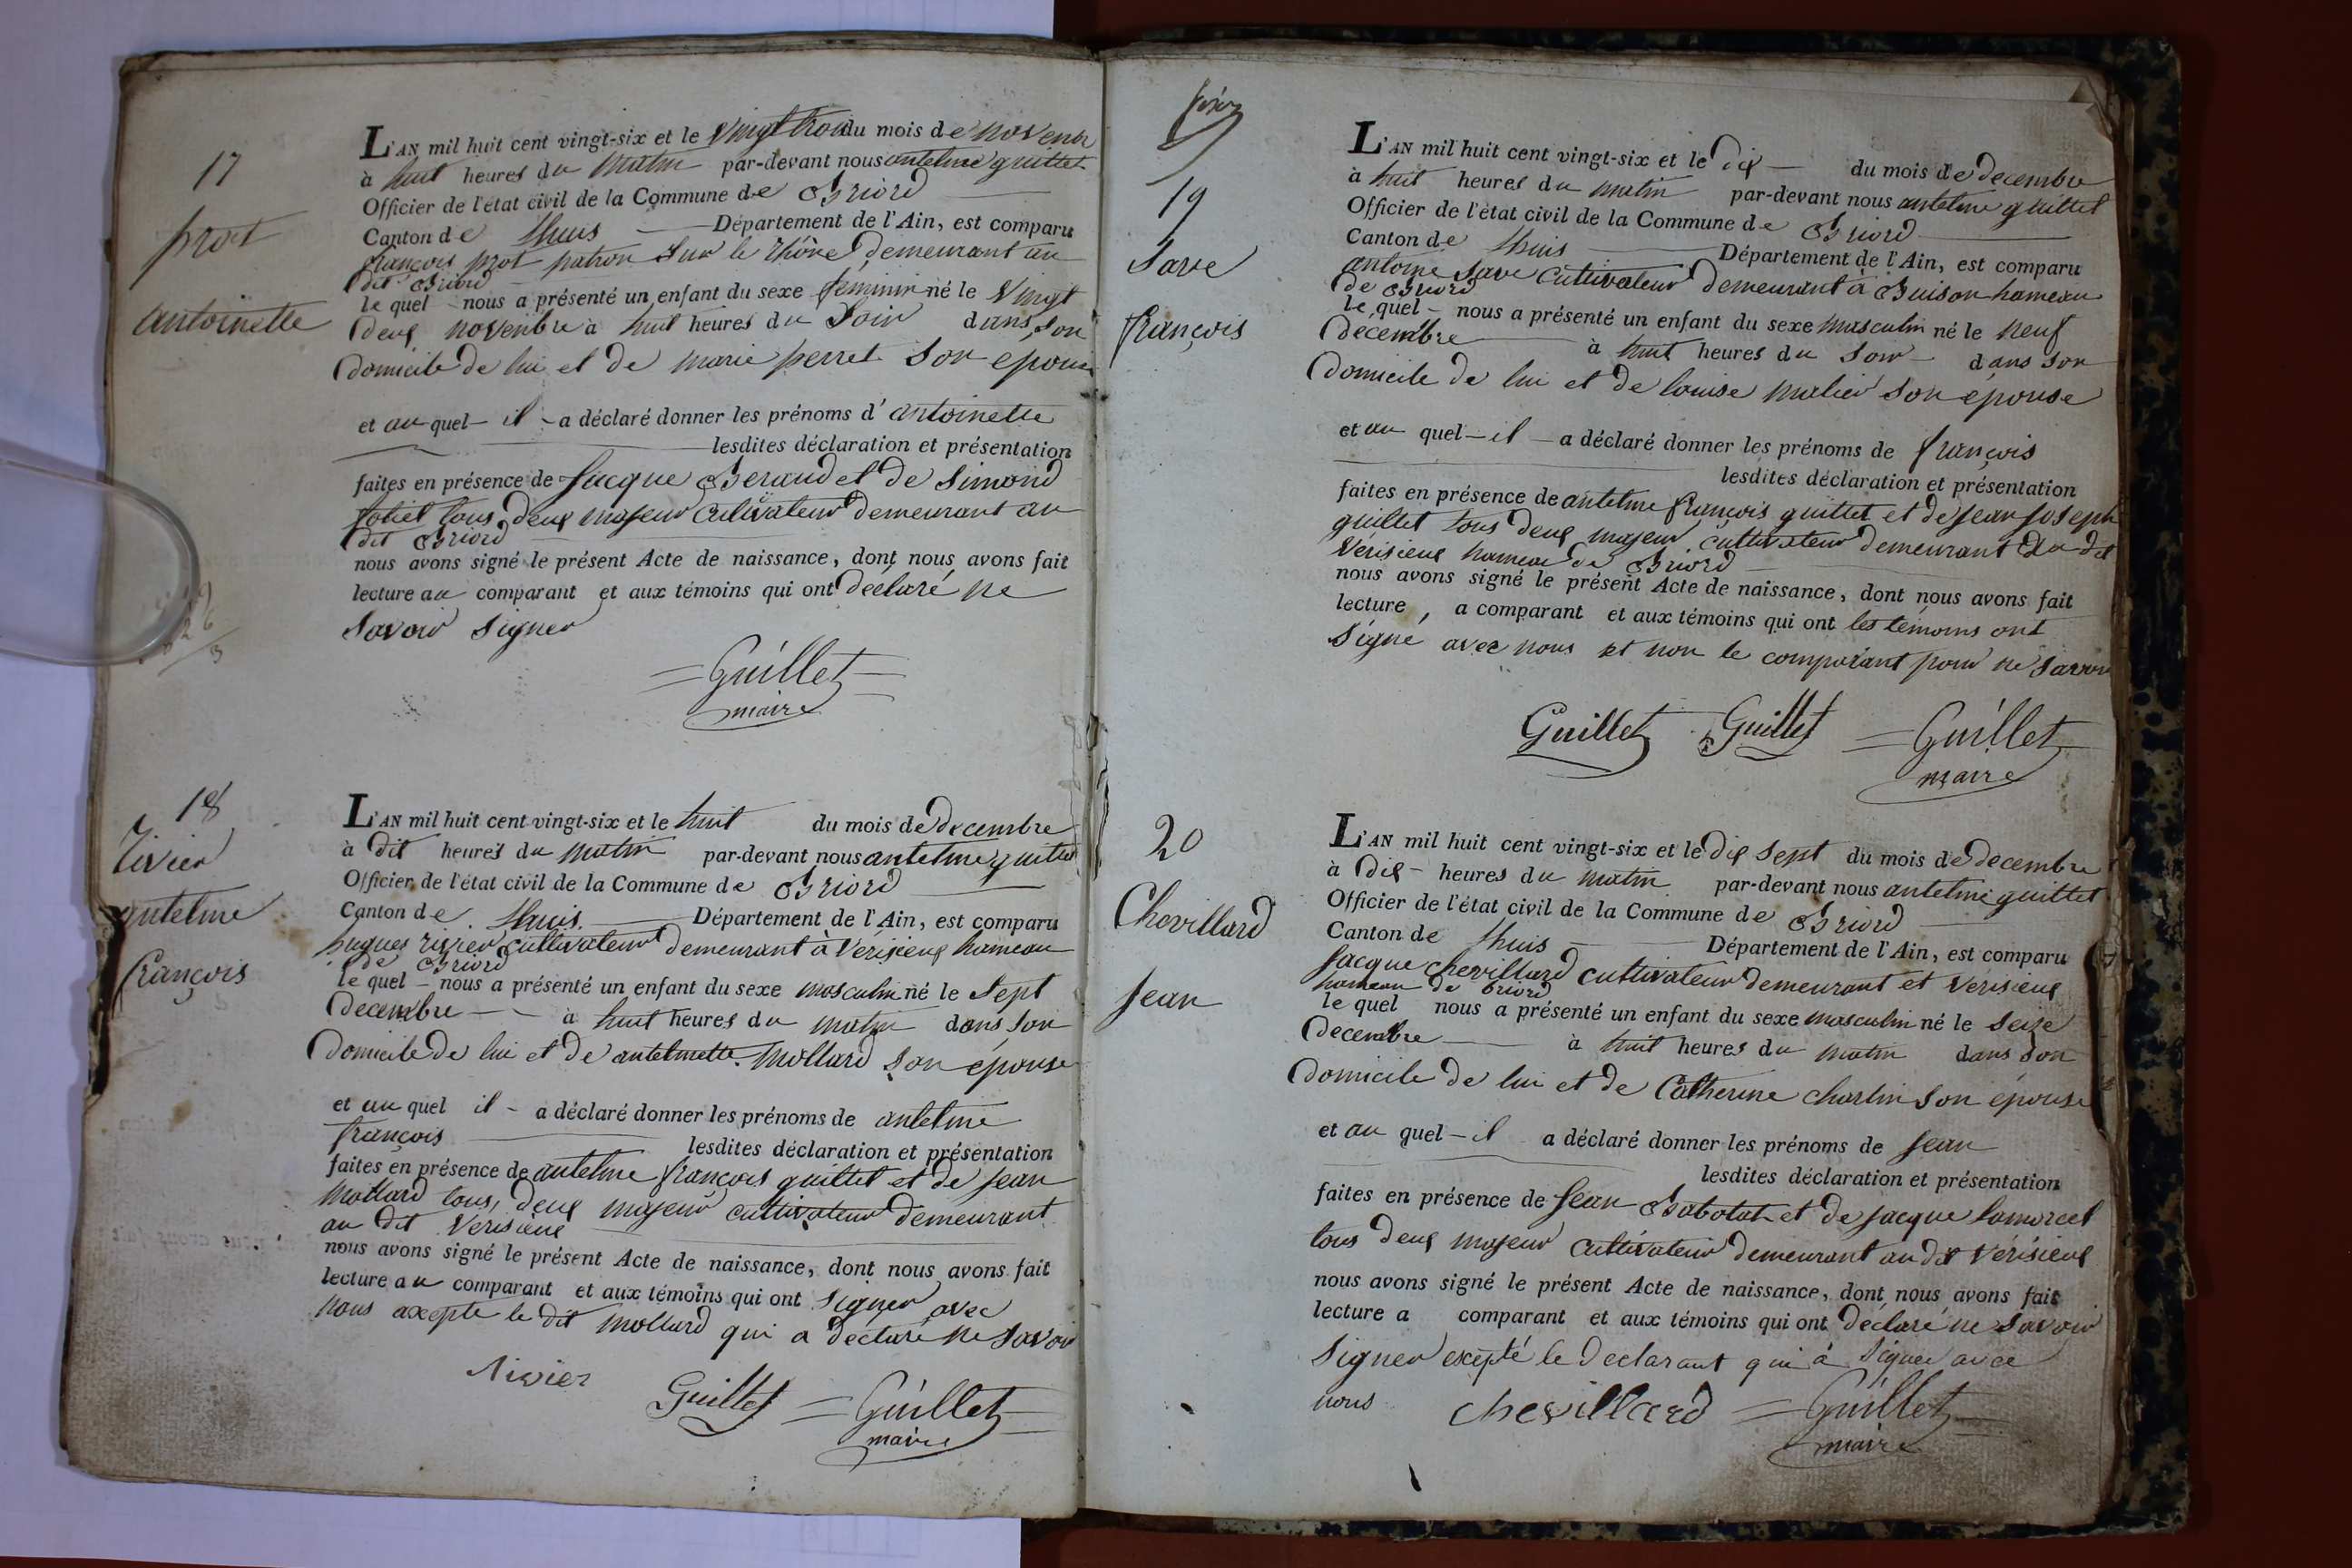 17
prost
antoinette
L'AN mil huit cent vingt-six et le vingt trois du mois de novembre
à huit heures du matin par-devant nous antelme guillet
Officier de l'état civil de la Commune de Briord
Canton de Lhuis Département de l'Ain, est comparu
françois prost patron sur le rhône demeurant au
dit Briord
le quel nous a présenté un enfant du sexe féminin né le vingt
deux novembre à huit heures du soir dans son
domicile de lui et de marie perret son epouse
et au quel il a déclaré donner les prénoms d'antoinette
lesdites déclaration et présentation
faites en présence de jacque Beraud et de Simond
tous deux majeur cultivateur demeurant au
dit Briord
nous avons signé le présent Acte de naissance, dont nous avons fait
lecture au comparant et aux témoins qui ont declaré ne
Savoir Signer
Guillet
maire
18
rivier
antelme
françois
L'AN mil huit cent vingt-six et le huit du mois de decembre
à dix heures du matin par-devant nous antelme guillet
Officier de l'état civil de la Commune de Briord
Canton de Lhuis Département de l'Ain, est comparu
hugues rivier cultivateur demeurant à Vérisieux hameau
de Briord
le quel nous a présenté un enfant du sexe masculin né le sept
decembre à huit heures du matin dans son
domicile de lui et de antelmette mollard son épouse
et au quel il a déclaré donner les prénoms de antelme
françois
lesdites déclaration et présentation
faites en présence de antelme françois guillet et de jean
mollard tous deux majeur cultivateur demeurant
au dit Verisieux
nous avons signé le présent Acte de naissance, dont nous avons fait
lecture au comparant et aux témoins qui ont signer avec
nous axepte le dit mollard qui a declaré ne savoir
Rivier Guillet Guillet
maire
19
Save
françois
L'AN mil huit cent vingt-six et le dix du mois de decembre
à huit heures du matin par-devant nous antelme guillet
Officier de l'état civil de la Commune de Briord
Canton de Lhuis Département de l'Ain, est comparu
antoine Save cultivateur demeurant à Buison hameau
de Briord
le quel nous a présenté un enfant du sexe masculin né le neuf
decembre à huit heures du soir dans son
domicile de lui et de louise son épouse
et au quel il a déclaré donner les prénoms de françois
lesdites déclaration et présentation
faites en présence de antelme françois guillet et de jean joseph
guillet tous deux majeur cultivateur demeurant au dit
Vérisieux hameau de Briord
nous avons signé le présent Acte de naissance, dont nous avons fait
lecture, a comparant et aux témoins qui ont les témoins ont
Signé avec nous et non le comparant pour ne Savoir
Guillet Guillet Guillet
maire
20
Chevillard
jean
L'AN mil huit cent vingt-six et le dix sept du mois de decembre
à dix heures du matin par-devant nous antelme guillet
Officier de l'état civil de la Commune de Briord
Canton de Lhuis Département de l'Ain, est comparu
jacque chevillard cultivateur demeurant et Vérisieux
hameau de briord
le quel nous a présenté un enfant du sexe masculin né le seize
decembre à huit heures du matin dans son
domicile de lui et de Catherine charlin son épouse
et au quel il a déclaré donner les prénoms de jean
lesdites déclaration et présentation
faites en présence de jean Babolat et de jacque
tous deux majeur cultivateur demeurant au dit Vérisieux
nous avons signé le présent Acte de naissance, dont nous avons fait
lecture a comparant et aux témoins qui ont déclaré ne savoir
Signer excepté le declarant qui à Signer avec
nous chevillard Guillet
maire